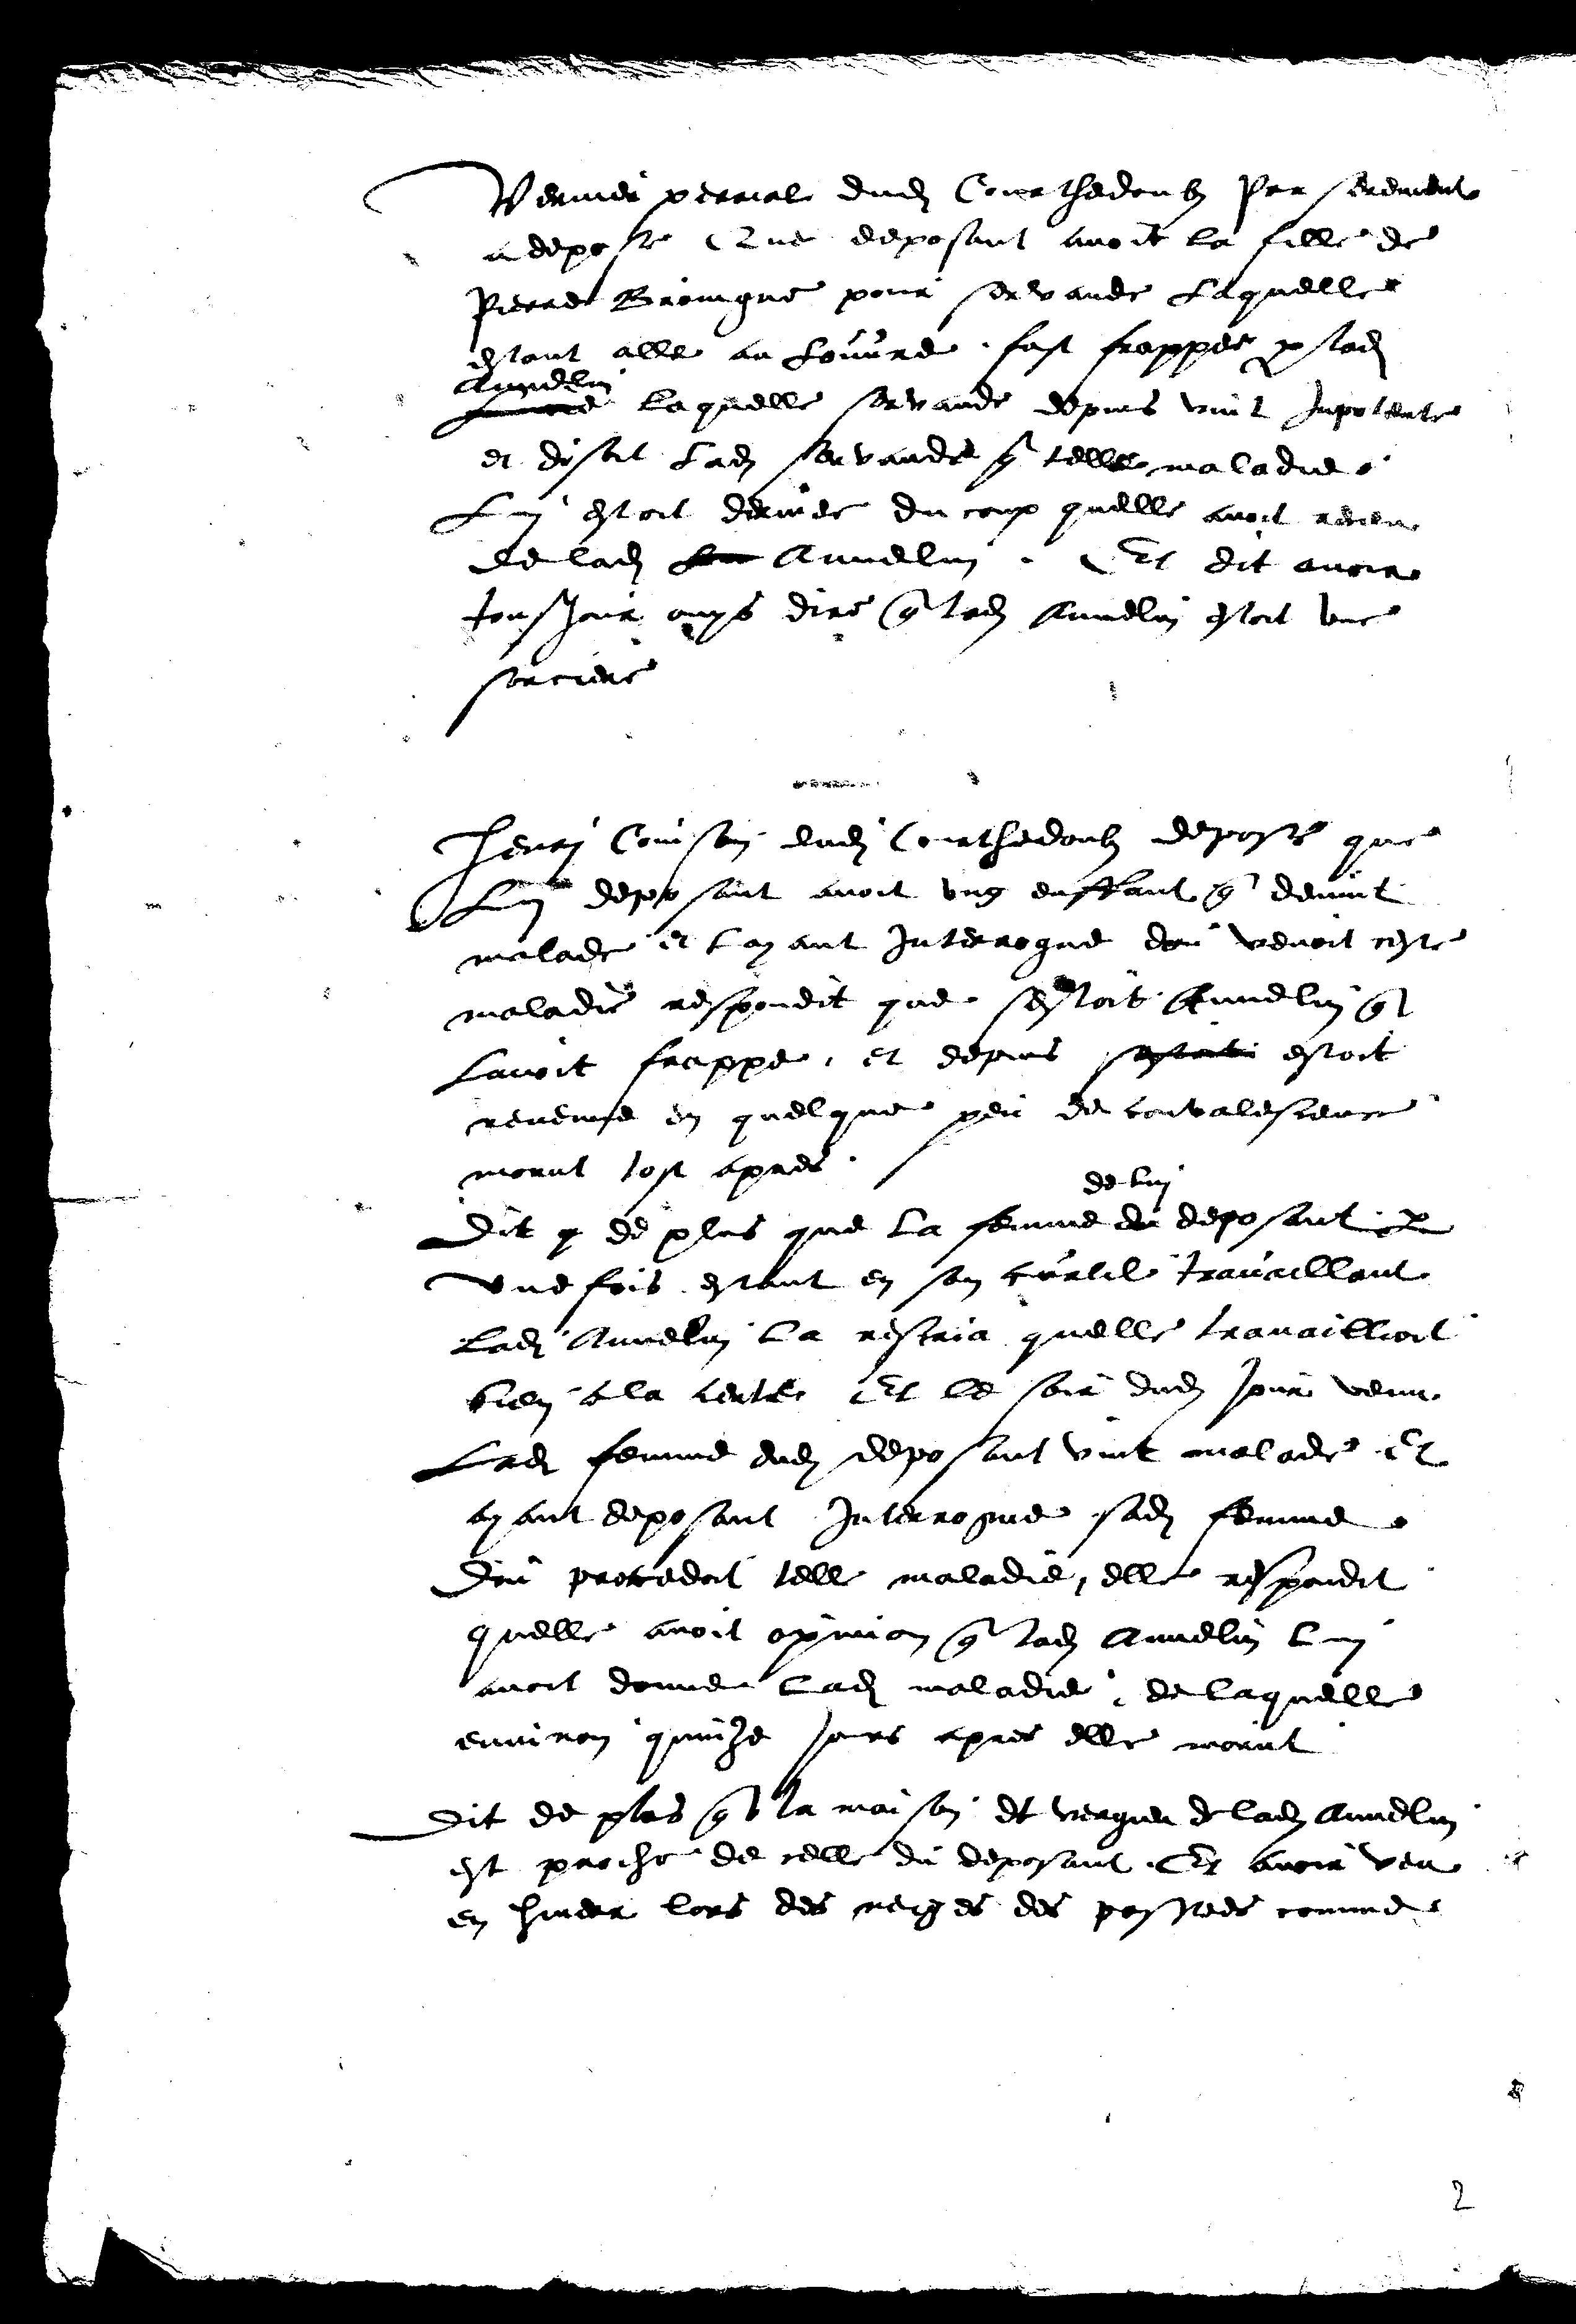 Vernier perrial dudj Courthedoulx Par serement
a depose Que deposant avoit la fille de
Pierre Broingne pour servande Laquelle
estant alle au Louvre fust frappee p ladj
Annelin
laquelle servande depuis vint Inpotente
et disoit Ladj servande q telle maladie
Luy estoit derivee du coup quelle avoit receu
de ladj Annelin . Et dit avoir
tousjour ouys dire q ladj Annelin estoit une
sorciere
Henry Coinson dudj Courthedoulx depose que
Luy deposant avoit ung enffant q devint
malade et layant Interrogue dou venoit ceste
maladie respondit que sestoit Annelin q
Lavoit frappe, et depuis sestoit estoit
revenue en quelque peu de convalescence
morut tost apres
de luy
Dit q de plus que la femme du deposant
une fois estant en son curtil travaillant
Ladj Annelin la rescria quelle travailloit
bien a la Et le soir dudj jour venu
Ladj femme dudj deposant vint malade Et
ayant deposant Interrogue sadj femme
Dou procedoit telle maladie, elle respondit
quelle avoit opinion q ladj Annelin luy
avoit donne ladj maladie, de laquelle
environ quinze jours apres elle morut
Dit de plus q la maison et vergier de ladj Annelin
est proche de celle du deposant. Et avoir veu
en hiver lors des neiges des passees comme
2